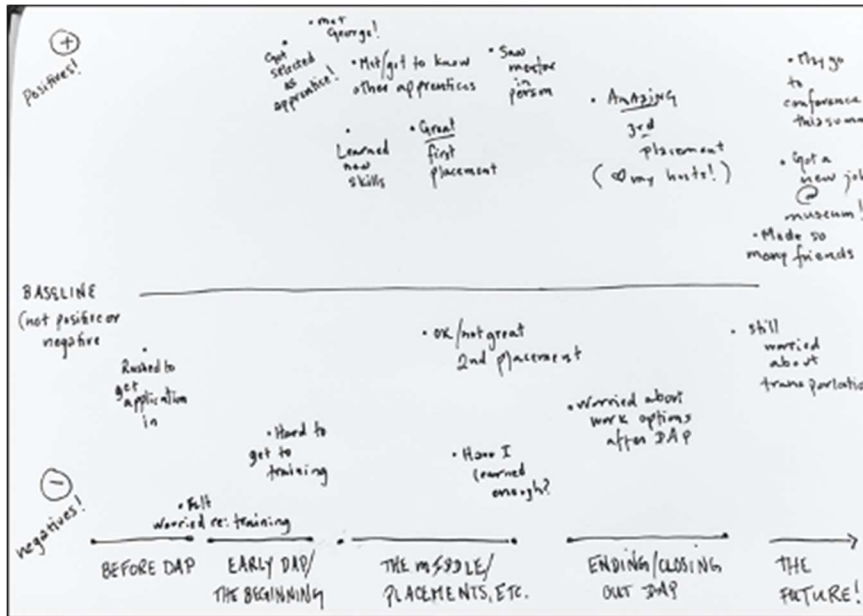 +
Positives!
• Got
selected
as
apprentice!
• met
George!
• Met/got to know
other apprentices
• Saw
mentor
in
person
• Learned
new
skills
• Great
first
placement
• AMAZING
3rd
placement
(♡ my hosts!)
• May go
to
conference
this summ
• Got a
new job
@
museum!
• Made so
many friends
BASELINE
(not positive or
negative
• Rushed to
get
application
in
• Felt
worried re: training
• Hard to
get to
training
• OK/not great
2nd placement
• Have I
learned
enough?
• Worried about
work options
after DAP
• Still
worried
about
transportation
−
negatives!
BEFORE DAP
EARLY DAP/
THE BEGINNING
THE MIDDLE/
PLACEMENTS, ETC.
ENDING/CLOSING
OUT DAP
THE
FUTURE!